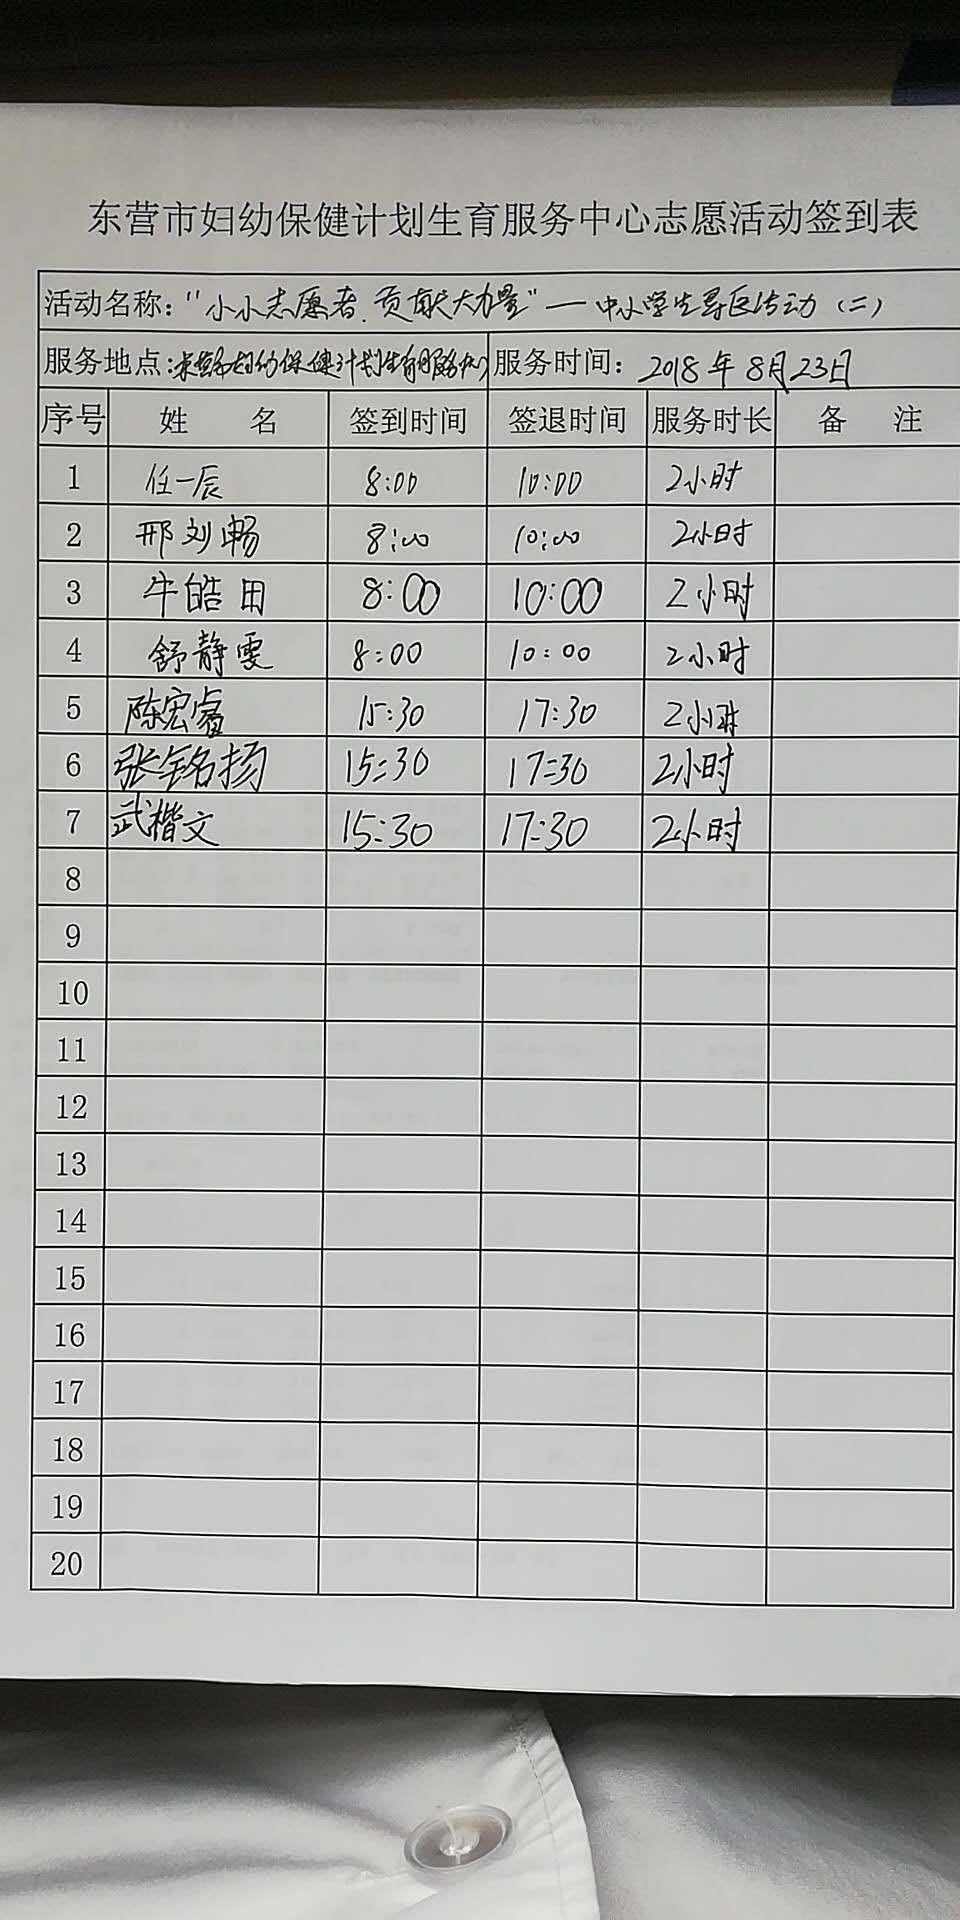 东营市妇幼保健计划生育服务中心志愿活动签到表
活动名称："小小志愿者,贡献大力量"—中小学生导医活动(二)
服务地点:东营市妇幼保健计划生育服务中心 服务时间: 2018年8月23日
序号 姓 名 签到时间 签退时间 服务时长 备 注
1 任一辰 8:00 10:00 2小时
2 邢刘畅 8:00 10:00 2小时
3 牛皓田 8:00 10:00 2小时
4 舒静雯 8:00 10:00 2小时
5 陈宏睿 15:30 17:30 2小时
6 张铭扬 15:30 17:30 2小时
7 武楷文 15:30 17:30 2小时
8
9
10
11
12
13
14
15
16
17
18
19
20